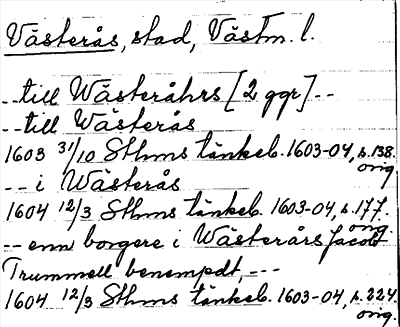 Västerås, stad, Västm. l.
--till Wästeråhrs [2 ggr]--
--till Wästerås
1603 31/10 Sthms tänkeb. 1603-04, s. 138.
orig.
-- i Wästerås
1604 12/3 Sthms tänkeb. 1603-04, s. 177.
orig.
-- enn borgere i Wästerårs Jacob
Trummell benempdt, ---
1604 12/3 Sthms tänkeb. 1603-04, s. 224.
orig.